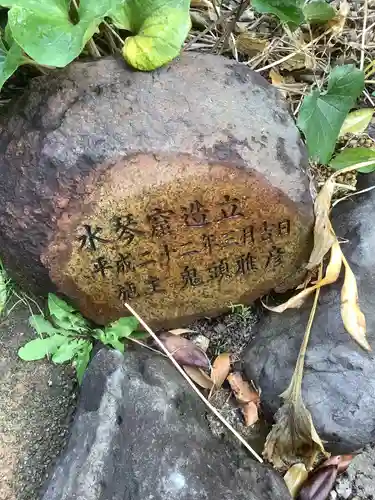 水琴窟造立
平成二十二年三月吉日
施主 鬼頭雅彦